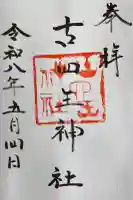 奉拝
古四王神社
令和八年五月四日